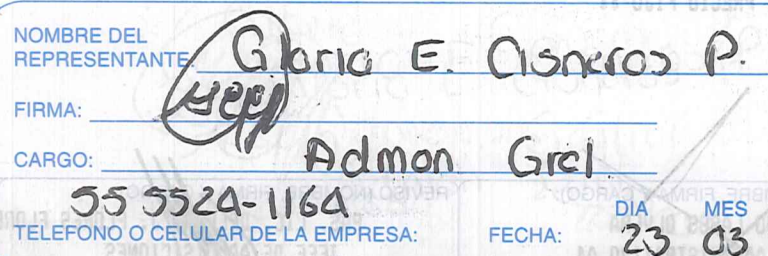 NOMBRE DEL
REPRESENTANTE Gloria E. Cisneros P.
FIRMA:
CARGO: Admon Gral
55 5524-1164 DIA MES
TELEFONO O CELULAR DE LA EMPRESA: FECHA: 23 03